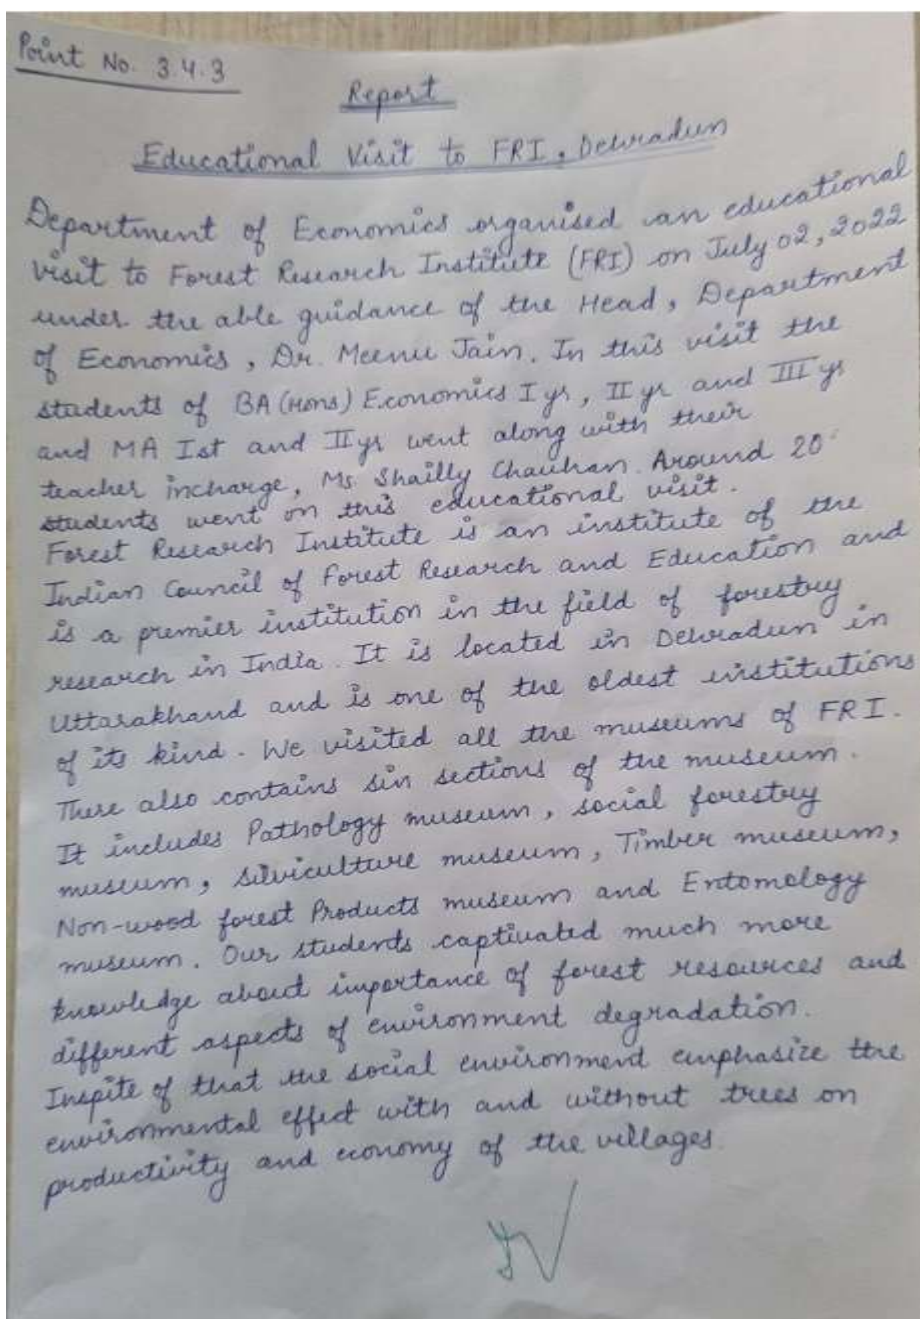 Point No. 3.4.3
Report
Educational Visit to FRI, Dehradun
Department of Economics organised an educational
visit to Forest Research Institute (FRI) on July 02, 2022
under the able guidance of the Head, Department
of Economics, Dr. Meenu Jain. In this visit the
students of BA (Hons) Economics I yr, II yr and III yr
and MA Ist and II yr went along with their
teacher incharge, Ms. Shailly Chauhan. Around 20
students went on this educational visit.
Forest Research Institute is an institute of the
Indian Council of Forest Research and Education and
is a premier institution in the field of forestry
research in India. It is located in Dehradun in
Uttarakhand and is one of the oldest institutions
of its kind. We visited all the museums of FRI.
There also contains sin sections of the museum.
It includes Pathology museum, social forestry
museum, silviculture museum, Timber museum,
Non-wood forest Products museum and Entomology
museum. Our students captivated much more
knowledge about importance of forest resources and
different aspects of environment degradation.
Inspite of that the social environment emphasize the
environmental effect with and without trees on
productivity and economy of the villages.